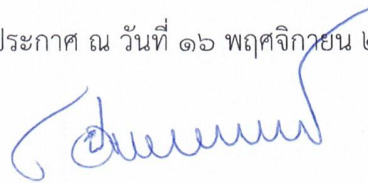 ประกาศ ณ วันที่ ๑๖ พฤศจิกายน ๒